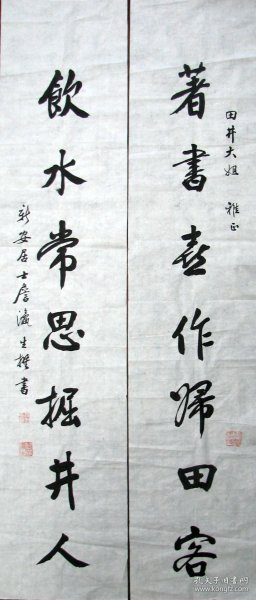 田井大姐 雅正
著書喜作歸田客
飲水常思掘井人
新安居士詹滄生撰書
孔夫子旧书网
www.kongfz.com